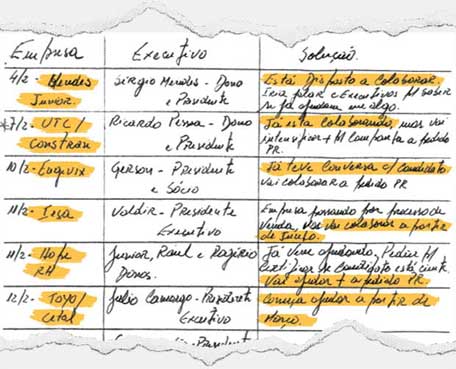 Empresa Executivo Solução.
4/2- Mendes Junior. Sérgio Mendes - Dono e Presidente Está Disposto a Colaborar.
Iria falar c/ Executivos p/ saber se já ajudam em algo.
*7/2- UTC/ Constran Ricardo Pessoa - Dono e Presidente Já esta colaborando, mas vai
intensificar + p/ Campanha a pedido PR.
10/2- Engevix Gerson - Presidente e Sócio Já teve conversa c/ candidato
vai colaborar a pedido PR.
11/2- Iesa Valdir - Presidente Executivo Empresa passando por processo de
venda, mas vai colaborar a partir
de Junho.
11/2- Hope RH Junior, Raul e Rogério Donos. Já vem ajudando, Pediu p/
certificar se candidato está ciente.
Vai ajudar + a pedido PR.
12/2- Toyo/ Cetal Julio Camargo - Presidente Executivo Começa ajudar a partir de
Março.